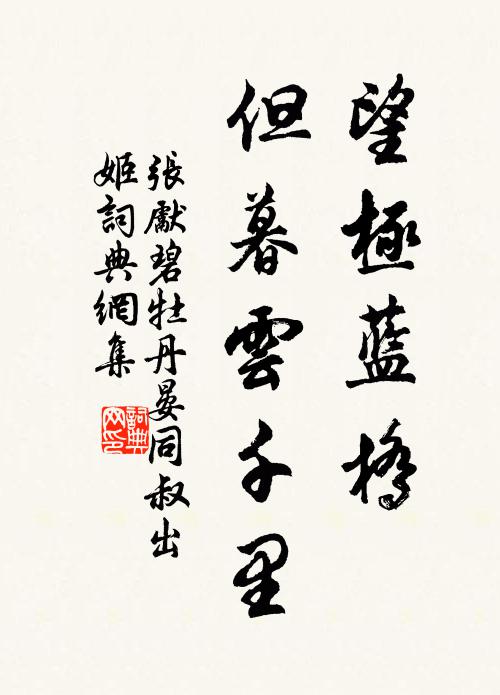 望極藍橋
但暮雲千里
張獻碧牡丹晏同叔出
姬詞典網集
詞典网印